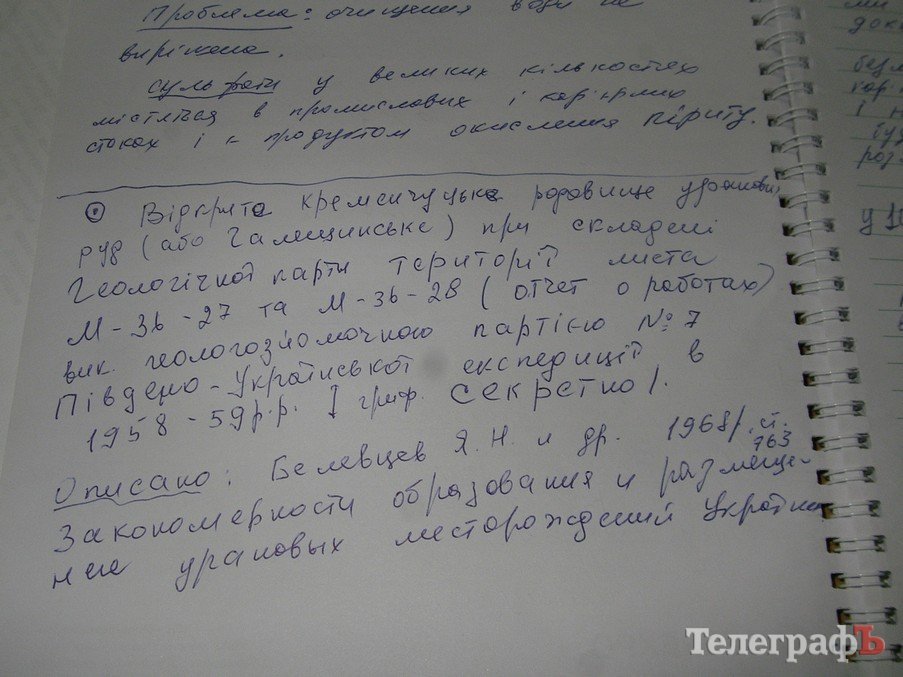 Проблема: очищення води не
вирішена.
Сульфати у великих кількостях
містяться в промислових і кар'єрних
стоках і є продуктом окислення піриту.
Відкрите Кременчуцьке родовище уранових
руд (або Галещинське) при складені
Геологічної карти території листа
М-36-27 та М-36-28 (отчет о работах)
вик. геологозйомочною партією №7
Південо-Української експедиції в
1958-59р.р. гриф. Секретно/.
Описано: Белевцев Я.Н. и др. 1968/. ст. 763
Закономерности образования и размеще-
ния урановых месторождений Украины
ми
док
кар
І н
буд
роз
ТелеграфЪ